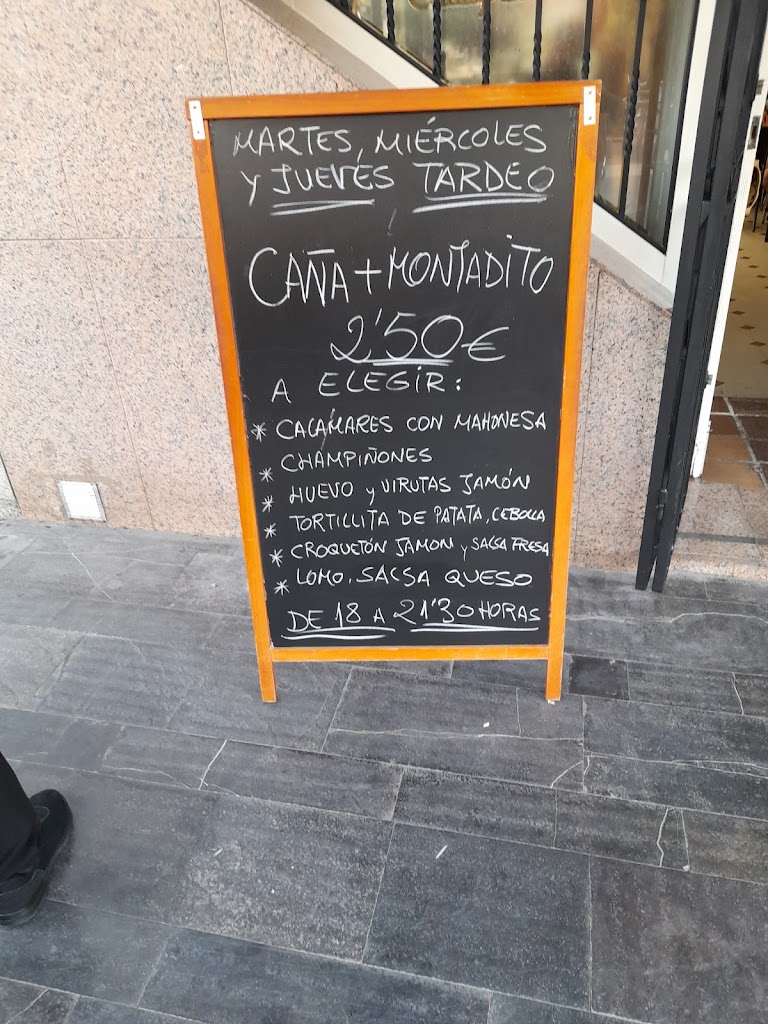 MARTES, MIÉRCOLES
Y JUEVES TARDEO
CAÑA + MONTADITO
2'50€
A ELEGIR:
* CALAMARES CON MAHONESA
* CHAMPIÑONES
* HUEVO y VIRUTAS JAMÓN
* TORTILLITA DE PATATA, CEBOLLA
* CROQUETÓN JAMON y SALSA FRESA
* LOMO, SALSA QUESO
DE 18 A 21'30 HORAS